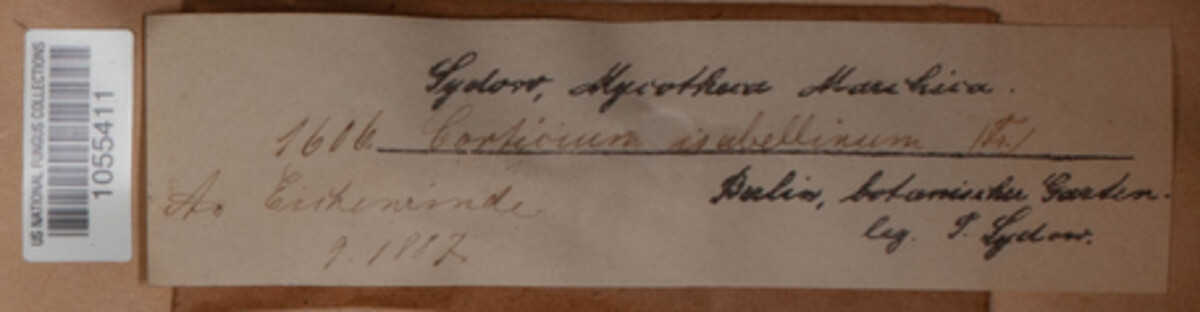 US NATIONAL FUNGUS COLLECTIONS
1055411
Sydow, Mycotheca Marchica.
1606 Corticium isabellinum (Fr.)
An Eichenrinde
9. 1887.
Berlin, botanischer Garten.
leg. P. Sydow.